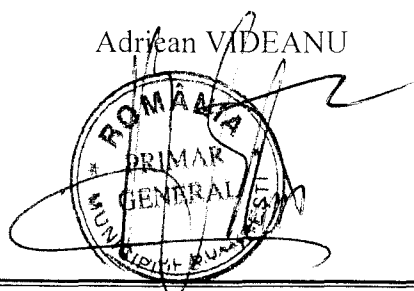 Adriean VIDEANU
ROMÂNIA
PRIMAR
GENERAL
MUNICIPIUL